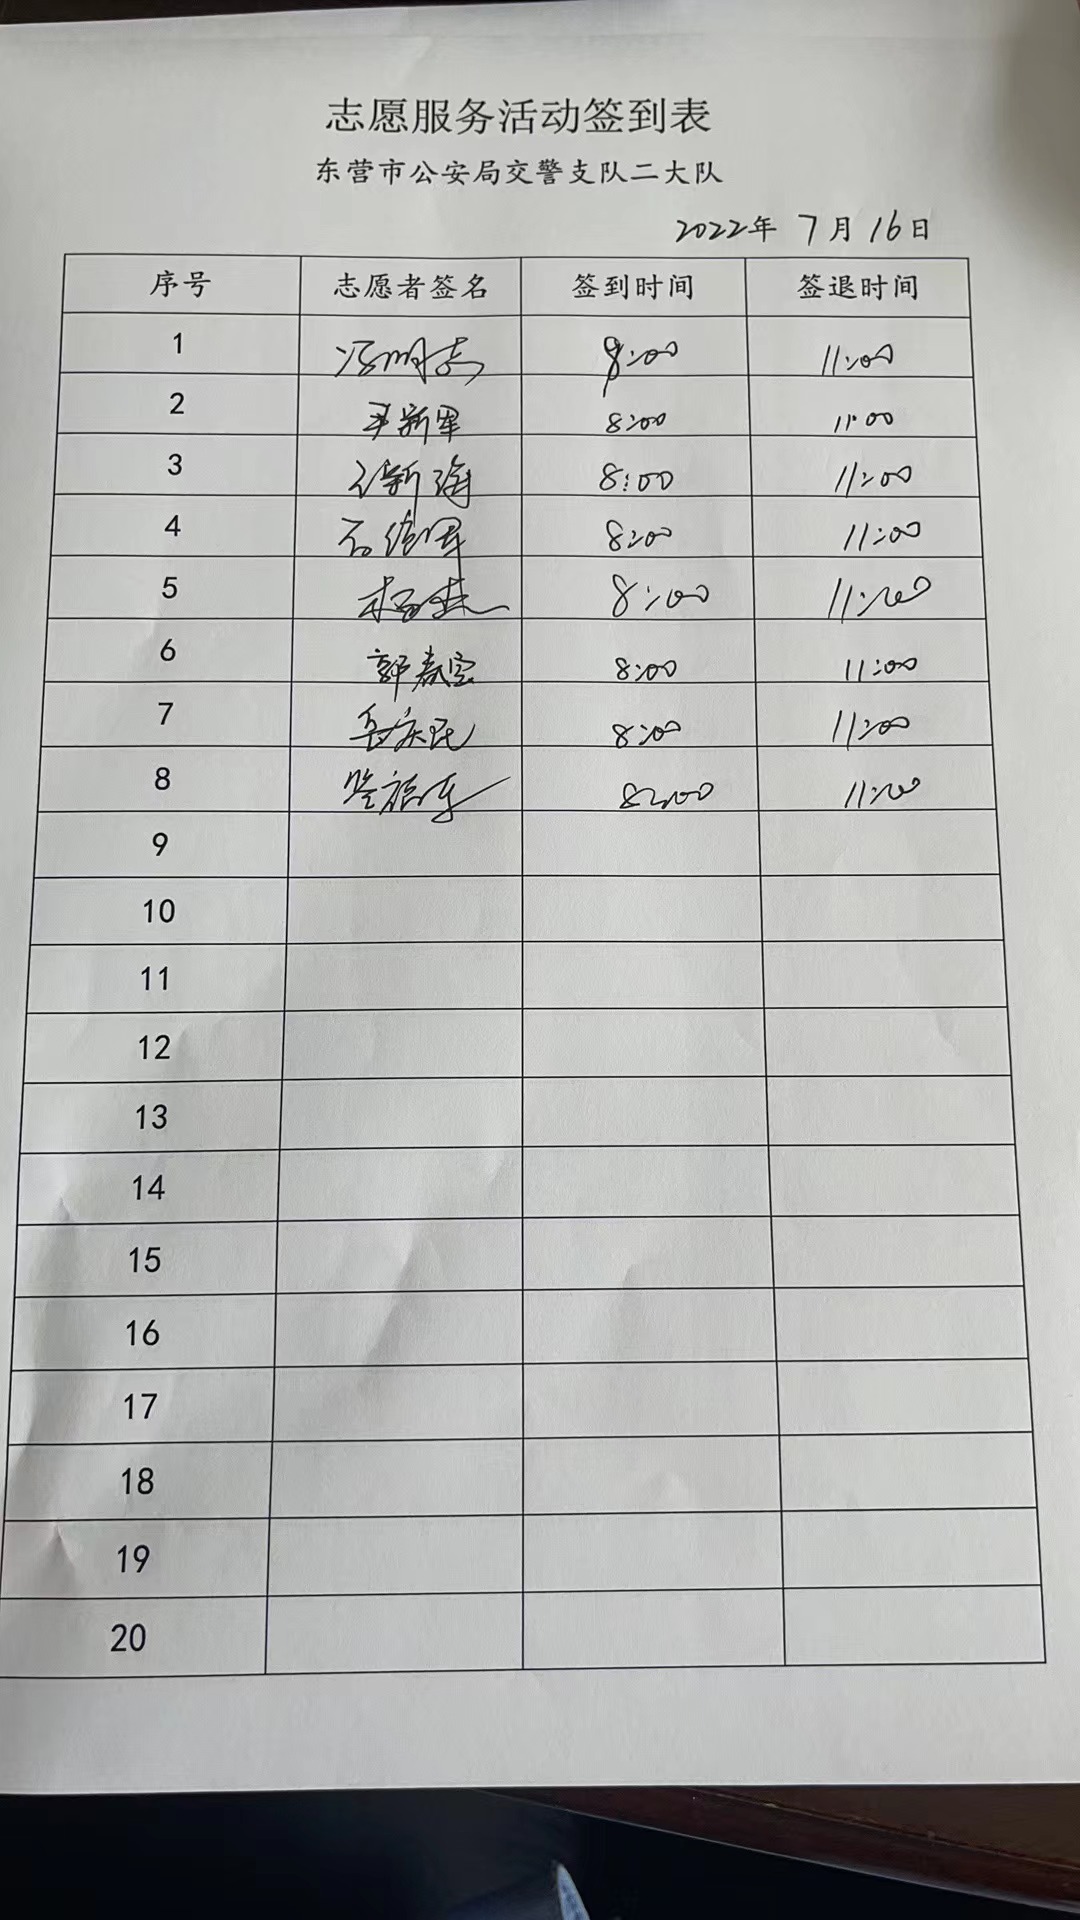 志愿服务活动签到表
东营市公安局交警支队二大队
2022年 7月16日
序号 志愿者签名 签到时间 签退时间
1 冯明志 8:00 11:00
2 新军 8:00 11:00
3 新海 8:00 11:00
4 8:00 11:00
5 杨 8:00 11:00
6 郭春宝 8:00 11:00
7 庆民 8:00 11:00
8 8:00 11:00
9
10
11
12
13
14
15
16
17
18
19
20